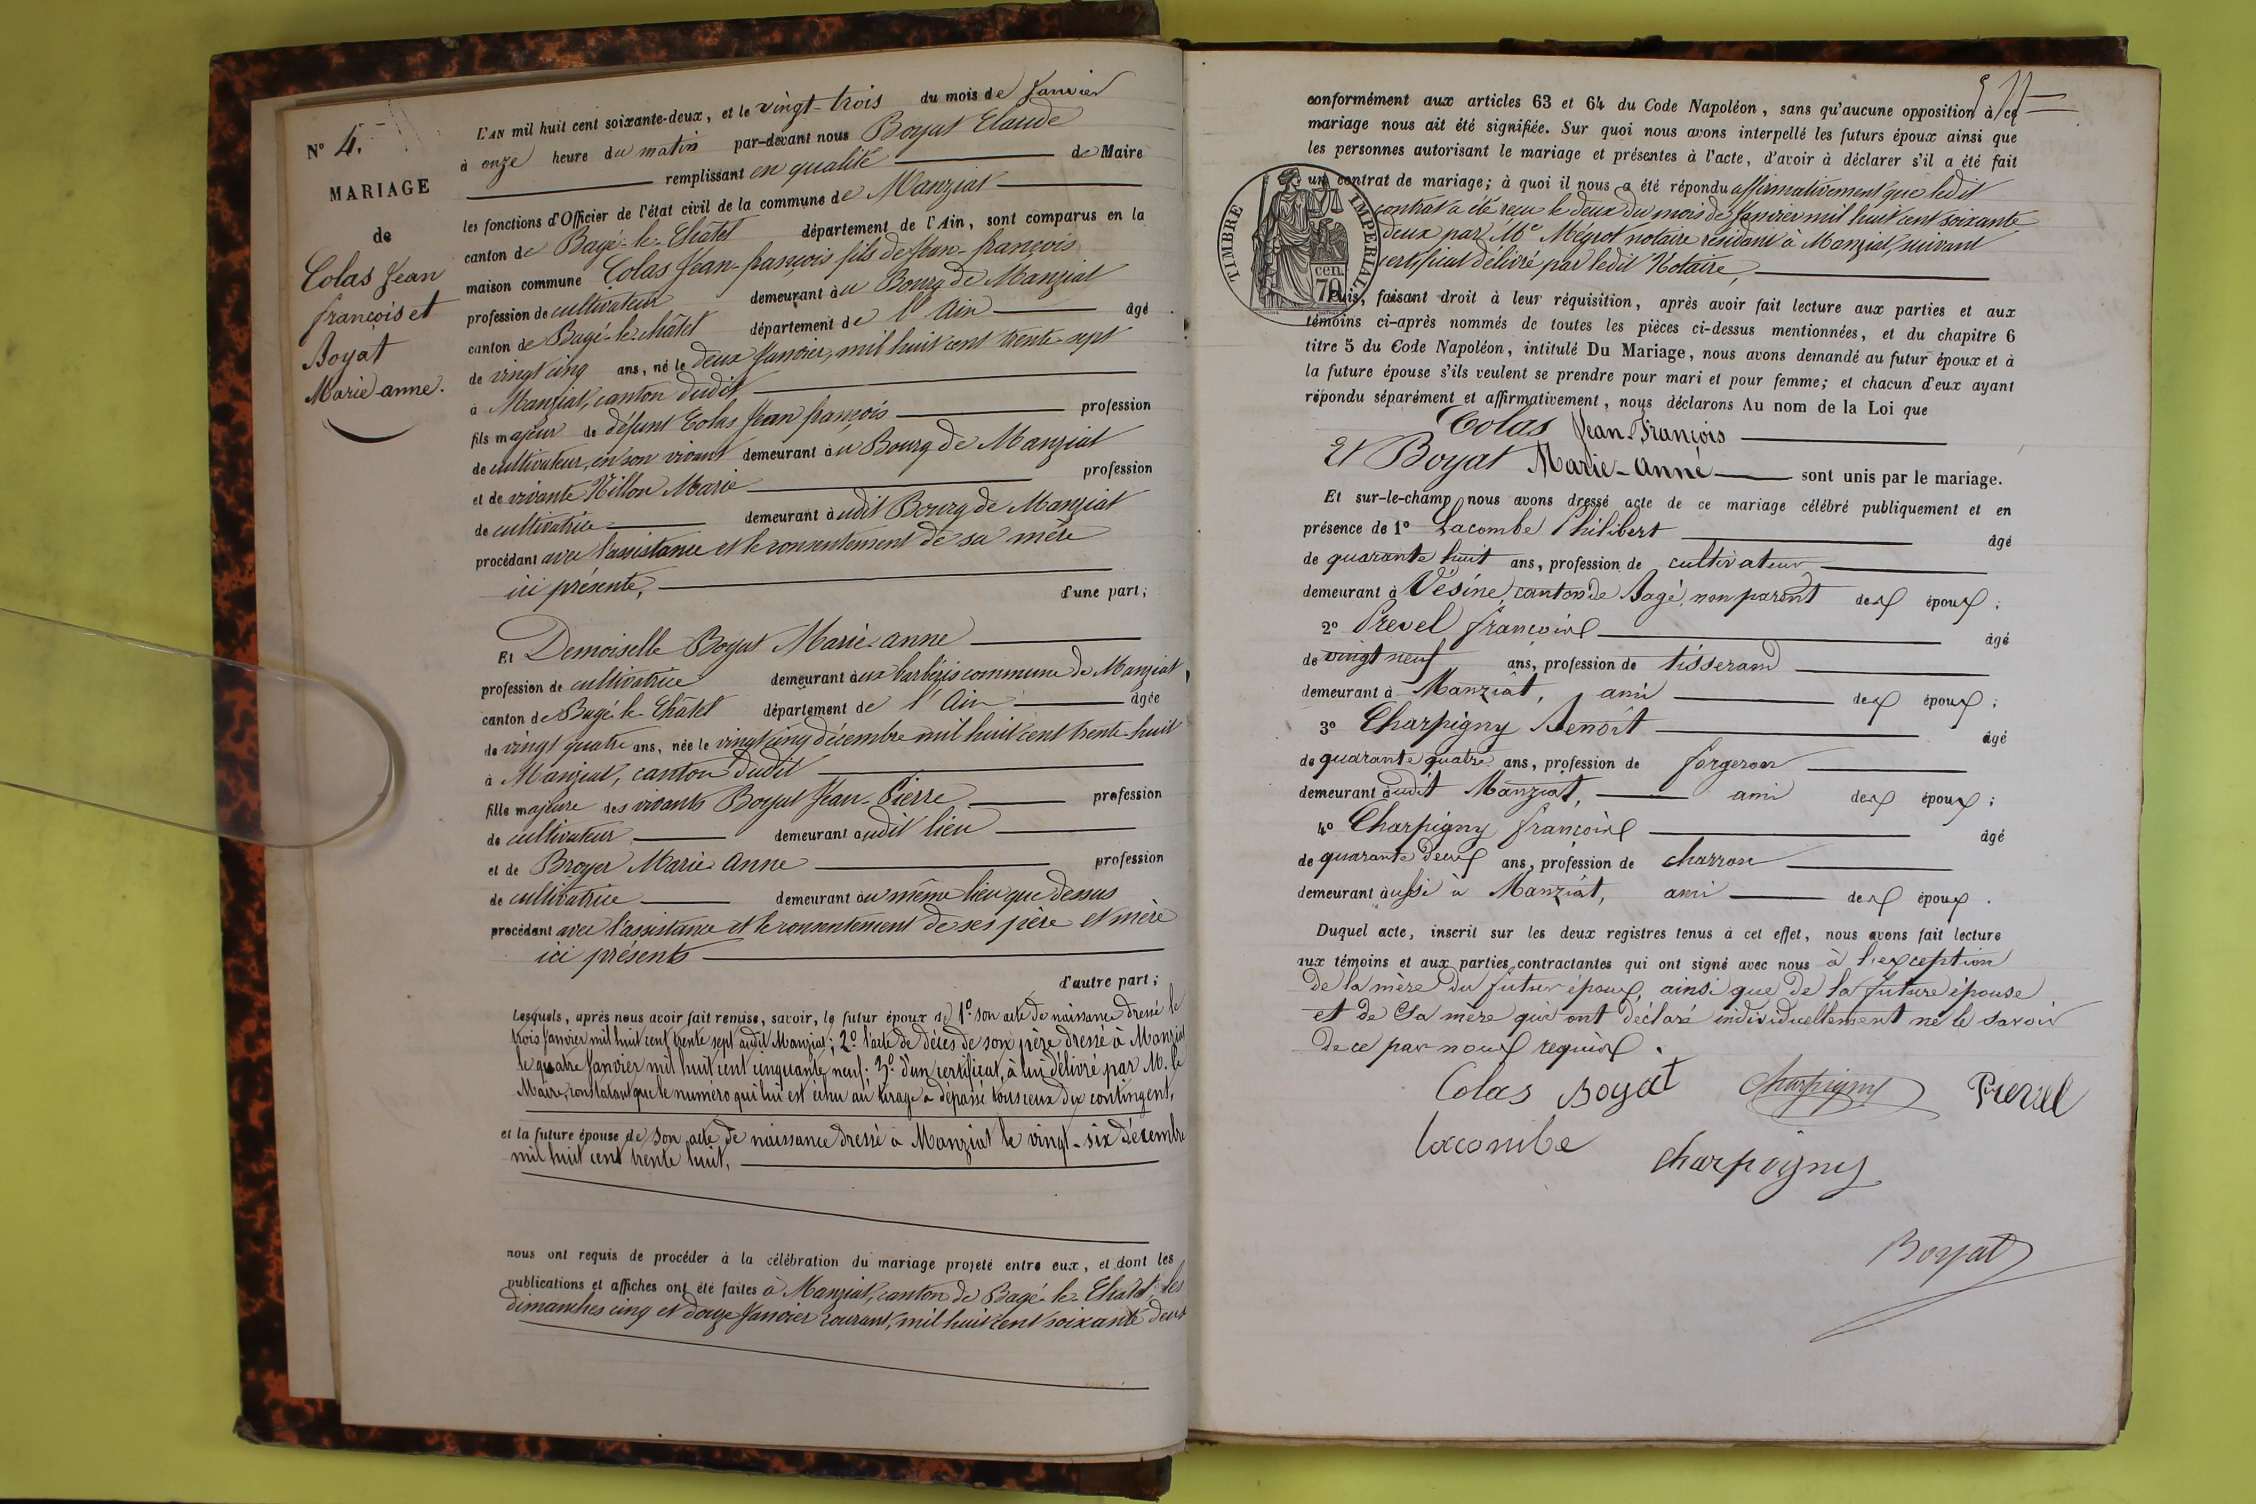 N° 4.
MARIAGE
de
Colas Jean
françois et
Boyat
Marie anne.
L'AN mil huit cent soixante-deux, et le vingt-trois du mois de Janvier
à onze heure du matin par-devant nous Boyat Claude
remplissant en qualité de Maire
les fonctions d'Officier de l'état civil de la commune de Manziat
canton de Bagé-le-Châtel département de l'Ain, sont comparus en la
maison commune Colas Jean-françois fils de Jean-françois
profession de cultivateur demeurant au Bourg de Manziat
canton de Bagé-le-châtel département de l'Ain âgé
de vingt cinq ans, né le deux Janvier, mil huit cent trente-sept
à Manziat, canton dudit
fils majeur de défunt Colas Jean françois profession
de cultivateur, en son vivant demeurant au Bourg de Manziat
et de vivante Nillon Marie profession
de cultivatrice demeurant audit Bourg de Manziat
procédant avec l'assistance et le consentement de sa mère
ici présente, d'une part;
Et Demoiselle Boyat Marie-anne
profession de cultivatrice demeurant aux barbéris commune de Manziat
canton de Bagé-le-Châtel département de l'Ain âgée
de vingt quatre ans, née le vingt cinq décembre mil huit cent trente-huit
à Manziat, canton dudit
fille majeure des vivants Boyat Jean-Pierre profession
de cultivateur demeurant audit lieu
et de Broyer Marie-anne profession
de cultivatrice demeurant au même lieu que dessus
procédant avec l'assistance et le consentement de ses père et mère
ici présents
d'autre part;
Lesquels, après nous avoir fait remise, savoir, le futur époux de 1° son acte de naissance dressé le
trois Janvier mil huit cent trente sept audit Manziat; 2° l'acte de décès de son père dressé à Manziat
le quatre Janvier mil huit cent cinquante neuf; 3° d'un certificat, à lui délivré par M. le
Maire, constatant que le numéro qui lui est échu au tirage a dépassé tous ceux du contingent,
et la future épouse de son acte de naissance dressé à Manziat le vingt-six décembre
mil huit cent trente huit,
nous ont requis de procéder à la célébration du mariage projeté entre eux, et dont les
publications et affiches ont été faites à Manziat, canton de Bagé-le-Châtel, les
dimanches cinq et douze Janvier courant, mil huit cent soixante deux
conformément aux articles 63 et 64 du Code Napoléon, sans qu'aucune opposition à ce
mariage nous ait été signifiée. Sur quoi nous avons interpellé les futurs époux ainsi que
les personnes autorisant le mariage et présentes à l'acte, d'avoir à déclarer s'il a été fait
un contrat de mariage; à quoi il nous a été répondu affirmativement que ledit
contrat a été reçu le deux du mois de Janvier mil huit cent soixante
deux par Me Mégrot notaire résidant à Manziat, suivant
certificat délivré par ledit Notaire,
TIMBRE IMPERIAL
cen. 70
Puis, faisant droit à leur réquisition, après avoir fait lecture aux parties et aux
témoins ci-après nommés de toutes les pièces ci-dessus mentionnées, et du chapitre 6
titre 5 du Code Napoléon, intitulé Du Mariage, nous avons demandé au futur époux et à
la future épouse s'ils veulent se prendre pour mari et pour femme; et chacun d'eux ayant
répondu séparément et affirmativement, nous déclarons Au nom de la Loi que
Colas Jean-François
Et Boyat Marie-anne sont unis par le mariage.
Et sur-le-champ nous avons dressé acte de ce mariage célébré publiquement et en
présence de 1° Lacombe Philibert âgé
de quarante huit ans, profession de cultivateur
demeurant à Vésine, canton de Bagé, non parent des époux;
2° Prevel françois âgé
de vingt neuf ans, profession de tisserand
demeurant à Manziat, ami des époux;
3° Charpigny Benoît âgé
de quarante quatre ans, profession de forgeron
demeurant audit Manziat, ami des époux;
4° Charpigny françois âgé
de quarante deux ans, profession de charron
demeurant aussi à Manziat, ami des époux.
Duquel acte, inscrit sur les deux registres tenus à cet effet, nous avons fait lecture
aux témoins et aux parties contractantes qui ont signé avec nous à l'exception
de la mère du futur époux, ainsi que de la future épouse
et de sa mère qui ont déclaré individuellement ne le savoir
de ce par nous requis.
Colas Boyat Charpigny Prevel
lacombe charpigny
Boyat